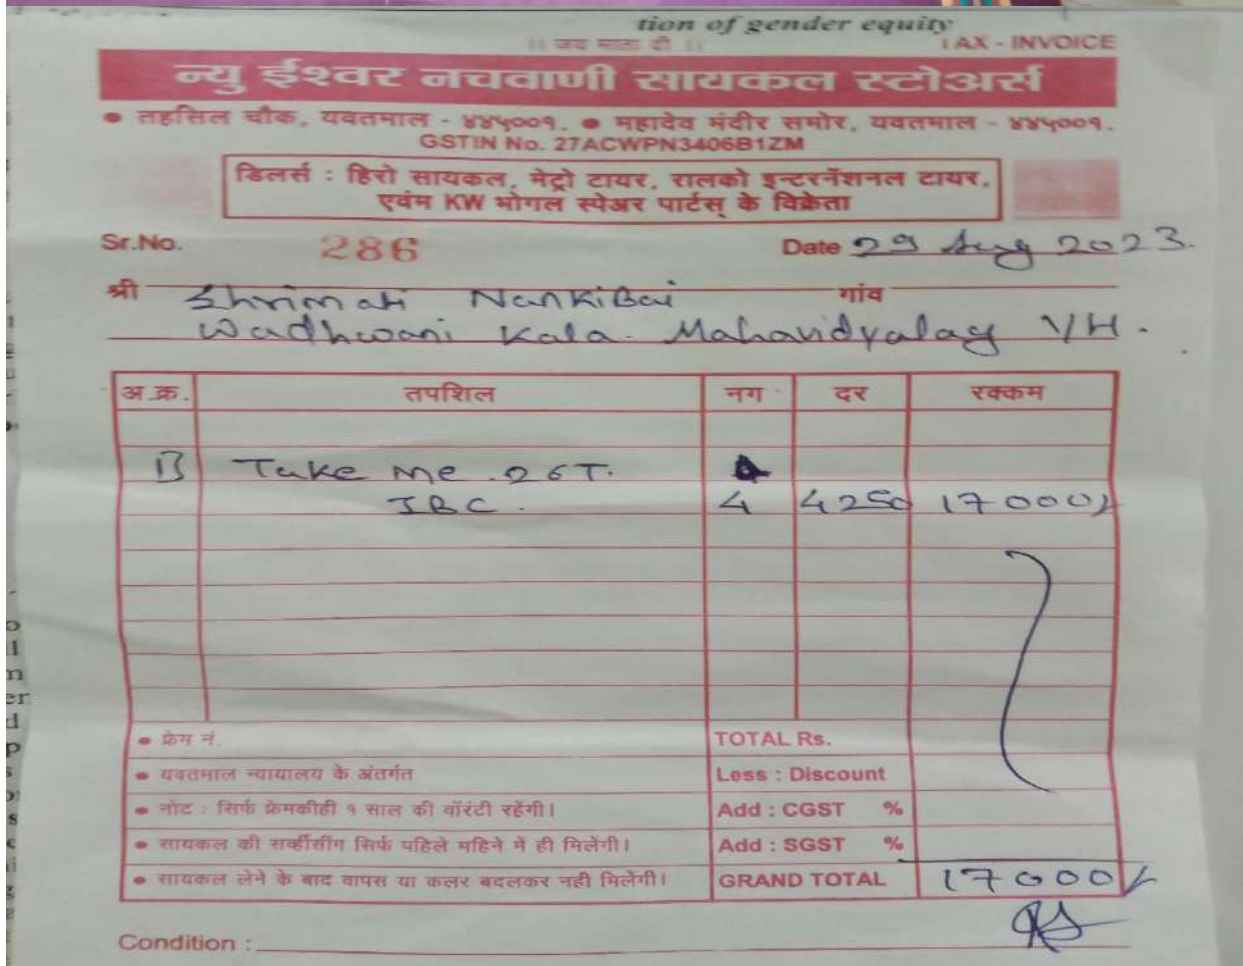 tion of gender equity
|| जय माता दी ||
TAX - INVOICE
न्यु ईश्वर नचवाणी सायकल स्टोअर्स
• तहसिल चौक, यवतमाल - ४४५००१. • महादेव मंदीर समोर, यवतमाल - ४४५००१.
GSTIN No. 27ACWPN3406B1ZM
डिलर्स : हिरो सायकल, मेट्रो टायर, रालको इन्टरनॅशनल टायर,
एवंम KW भोगल स्पेअर पार्टस् के विक्रेता
Sr.No. 286 Date 29 Aug 2023.
श्री Shrimati NankiBai गांव
Wadhwani Kala. Mahavidyalay Y/H.
अ.क्र. तपशिल नग दर रक्कम
1) Take Me. 26T.
IBC. 4 4250 17000/-
• फ्रेम नं. TOTAL Rs.
• यवतमाल न्यायालय के अंतर्गत Less : Discount
• नोट : सिर्फ फ्रेमकीही १ साल की वॉरंटी रहेंगी। Add : CGST %
• सायकल की सर्व्हीसींग सिर्फ पहिले महिने में ही मिलेंगी। Add : SGST %
• सायकल लेने के बाद वापस या कलर बदलकर नही मिलेंगी। GRAND TOTAL 17000/-
Condition :